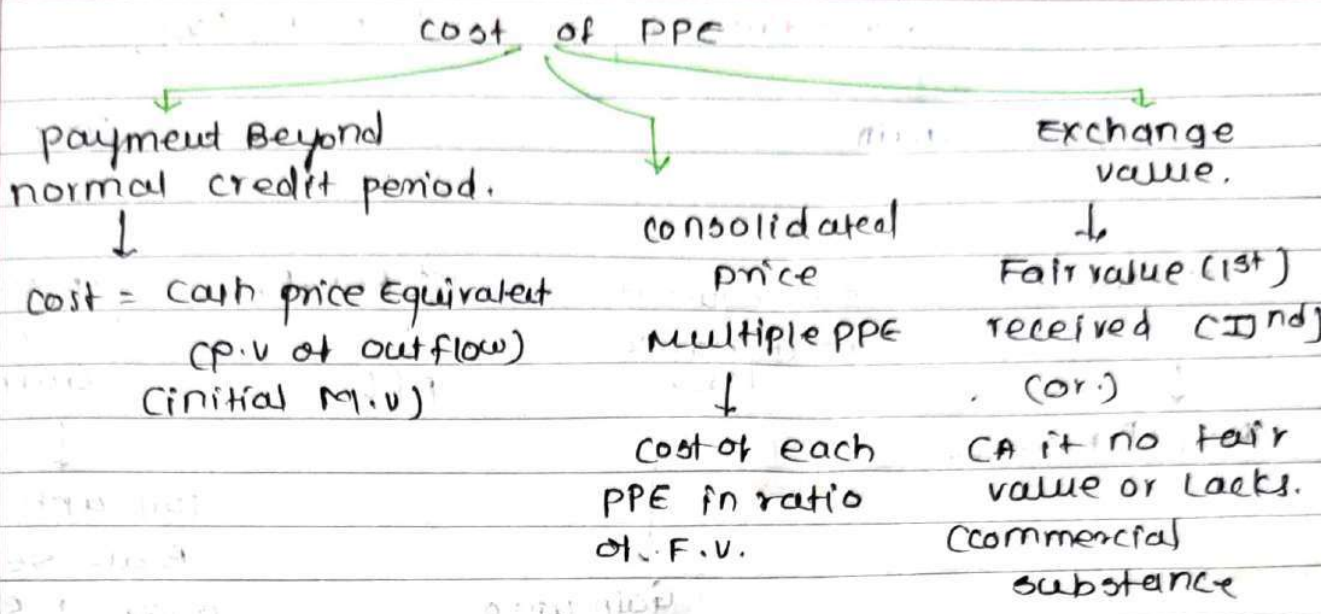 cost of PPE
payment Beyond
normal credit period.
cost = cash price Equivalent
(p.v of outflow)
(initial M.V)
consolidated
price
Multiple PPE
cost of each
PPE in ratio
of F.V.
Exchange
value.
Fair value (1st)
received (IInd)
(or.)
CA if no fair
value or Lacks.
(commercial
substance